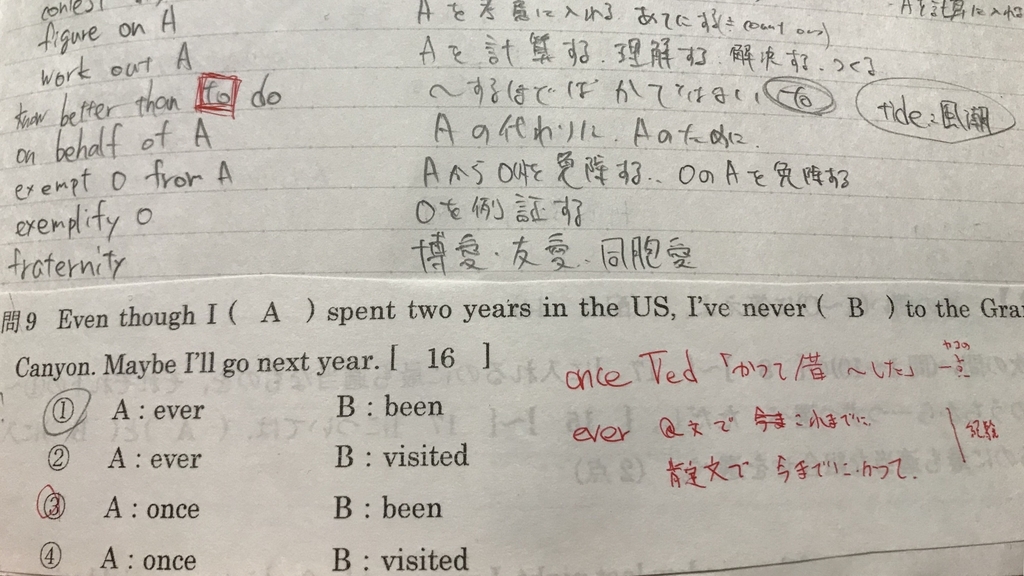 figure on A
Aを考慮に入れる. あてにする(= count on)
work out A
Aを計算する. 理解する. 解決する. つくる
know better than to do
〜するほどばかではない
tide : 風潮
on behalf of A
Aの代わりに. Aのために.
exempt O from A
AからOを免除する.. OのAを免除する
exemplify O
Oを例証する
fraternity
博愛・友愛. 同胞愛
問9 Even though I ( A ) spent two years in the US, I've never ( B ) to the Gra
Canyon. Maybe I'll go next year. [ 16 ]
① A : ever B : been
② A : ever B : visited
③ A : once B : been
④ A : once B : visited
once Ved 「かつて/昔〜した」 一点
ever Q文で これまでに
経験
肯定文で 今までに.かつて.